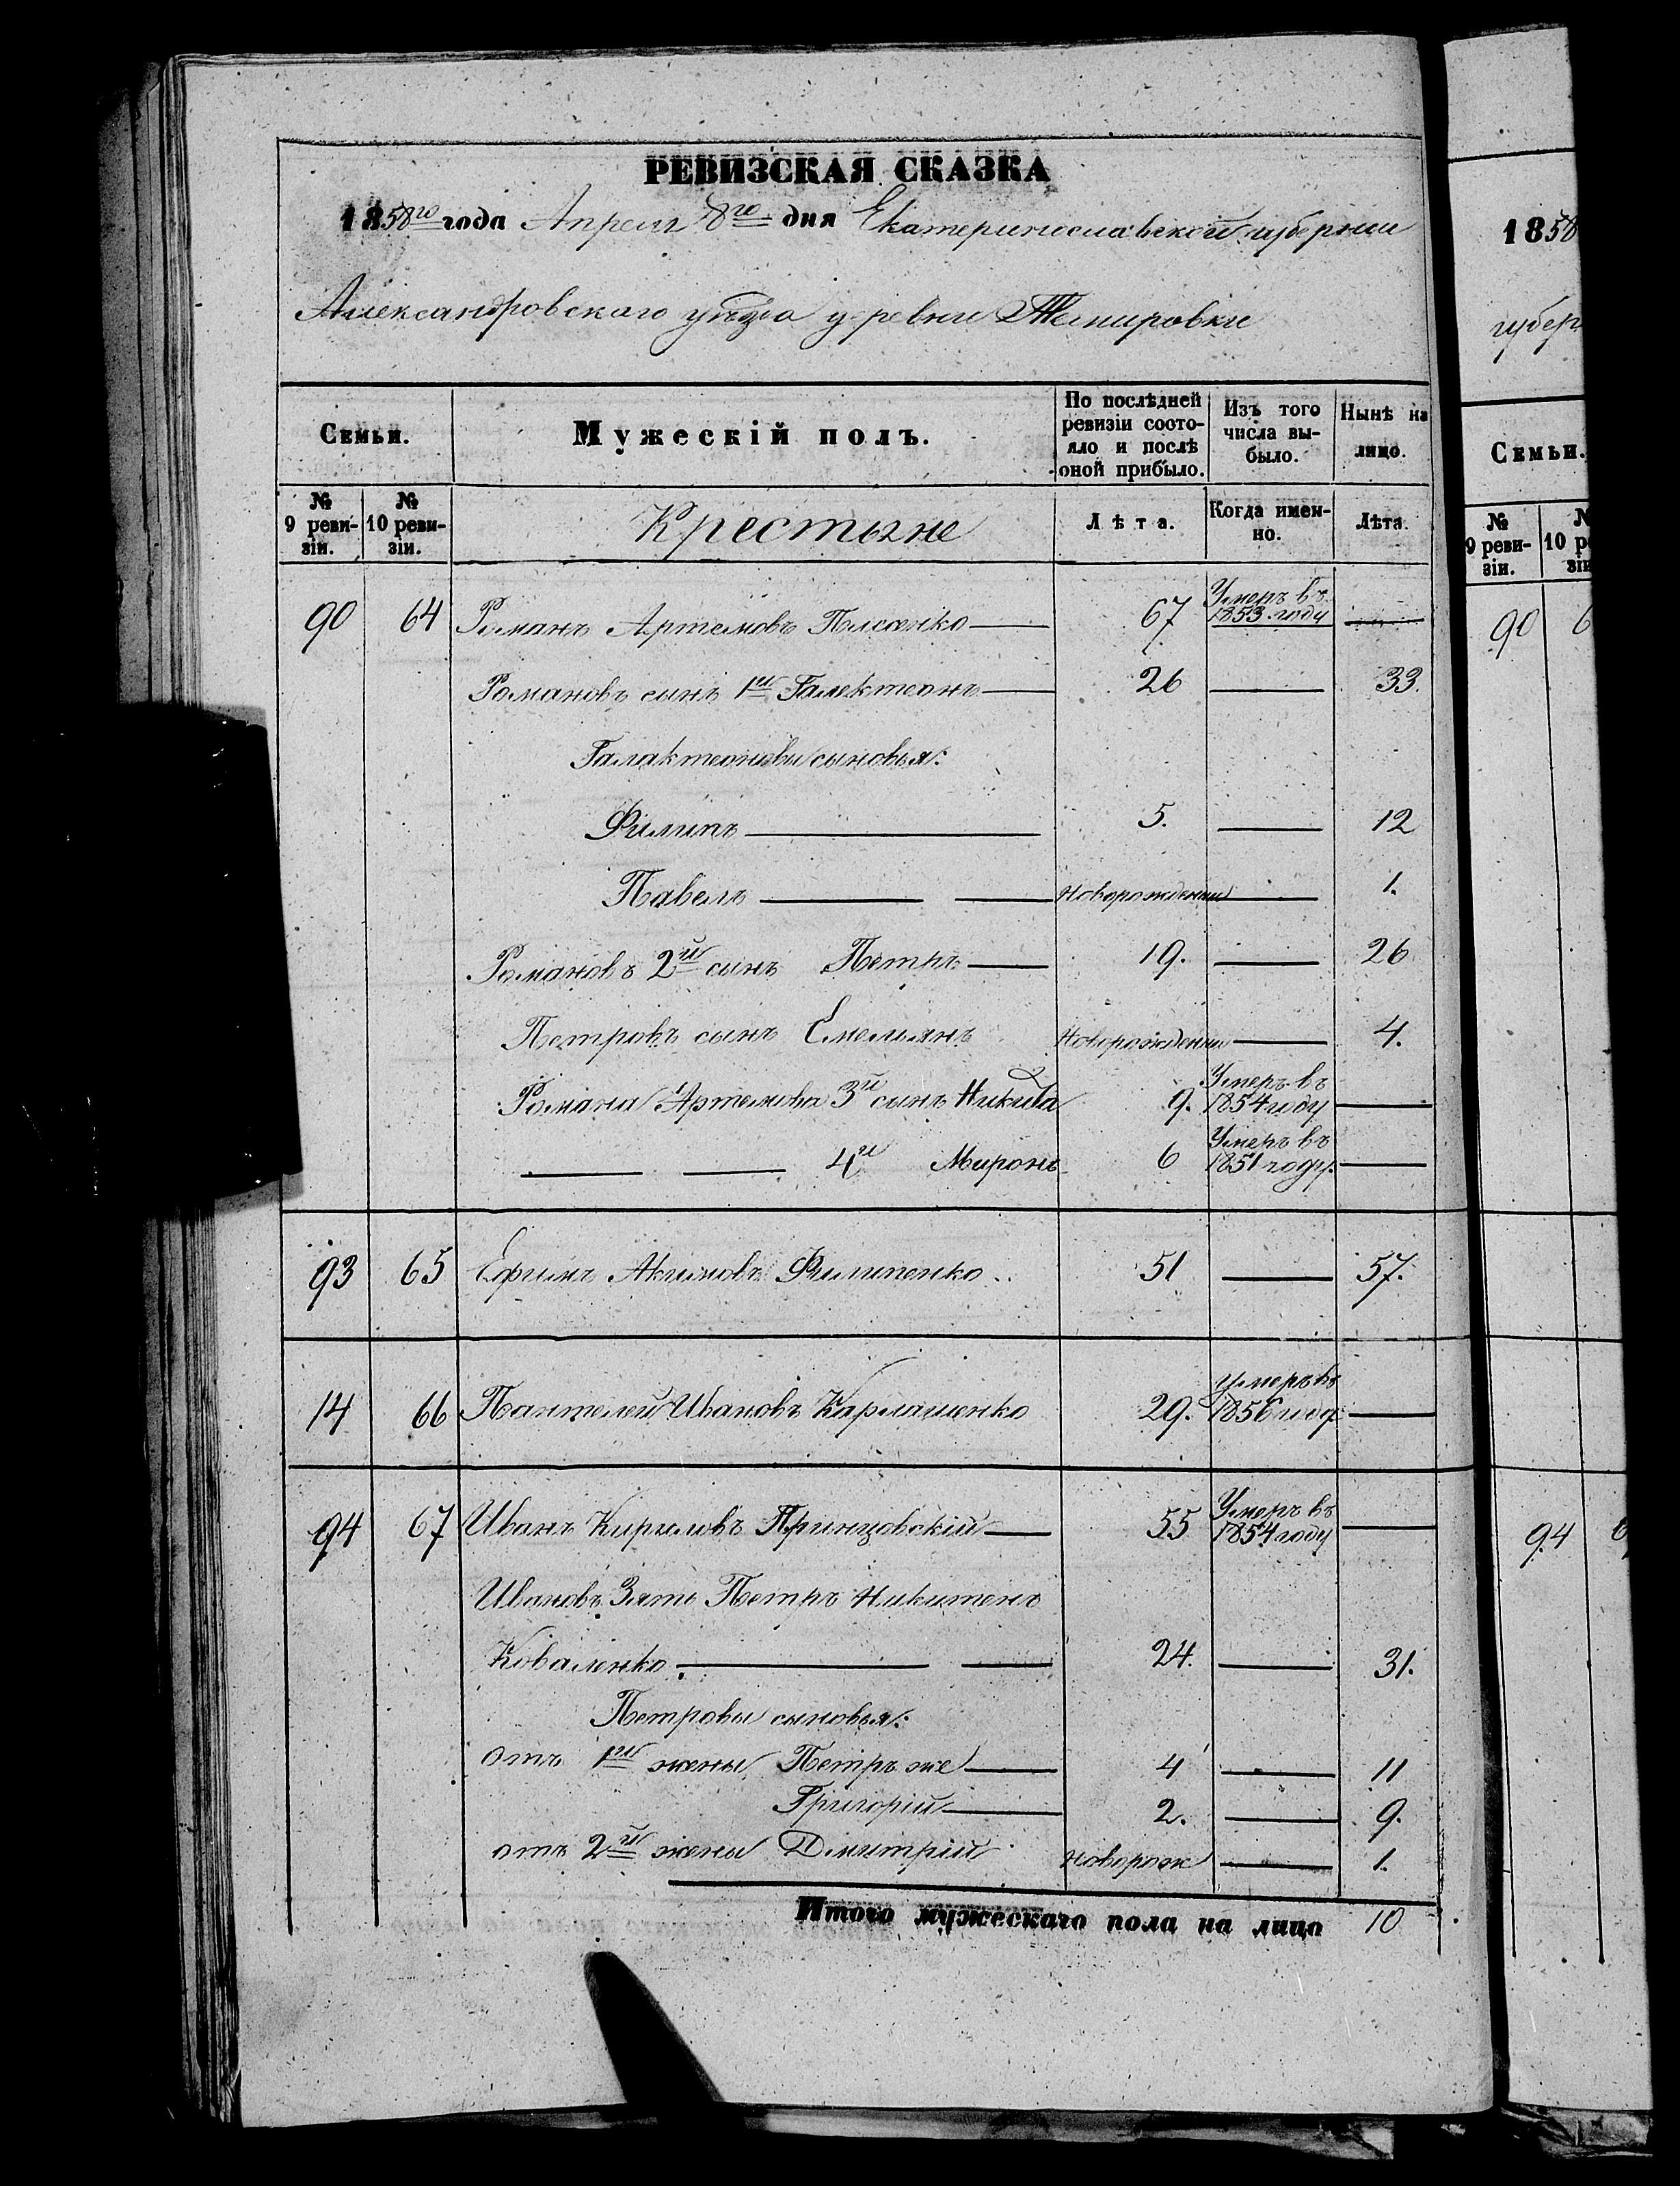 РЕВИЗСКАЯ СКАЗКА
1858го года Апреля 8го дня Екатеринославской губернии
Александровскаго уѣзда деревни Темировки
Семьи. Мужескій полъ. По послѣдней ревизіи состояло и послѣ оной прибыло. Изъ того числа выбыло. Нынѣ на лицо.
№ 9 ревизіи. № 10 ревизіи. Крестьяне Лѣта. Когда именно. Лѣта.
90 64 Романъ Артемовъ 67 Умеръ въ 1853 году —
Романовъ сынъ 1й Галектеонъ 26 — 33.
Галактеоновы сыновья:
Филипъ 5. — 12
Павелъ Новорожденый — 1.
Романовъ 2й сынъ Петръ 19. — 26
Петровъ сынъ Емельянъ Новорожденый — 4.
Романа Артемова 3й сынъ Никита 9. Умеръ въ 1854 году —
— — 4й Миронъ 6 Умеръ въ 1851 году. —
93 65 Ефимъ Акимовъ Филипенко 51 — 57.
14 66 Пантелей Ивановъ Карлашенко 29. Умеръ въ 1856 году —
94 67 Иванъ Кириловъ 55 Умеръ въ 1854 году —
Ивановъ Зять Петръ Никитенъ
Коваленко 24. — 31.
Петровы сыновья:
отъ 1й жены Петръ же 4 — 11
Григорій 2. — 9.
отъ 2й жены Дмитрій новорож — 1.
Итого мужескаго пола на лицо 10
1858
губер
Семьи.
№ 9 ревизіи. 10
90 6
94